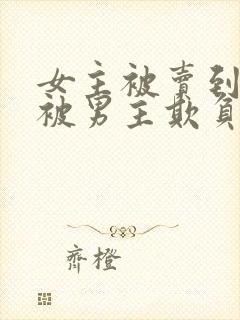 女主被賣到
被男主欺負
齊橙